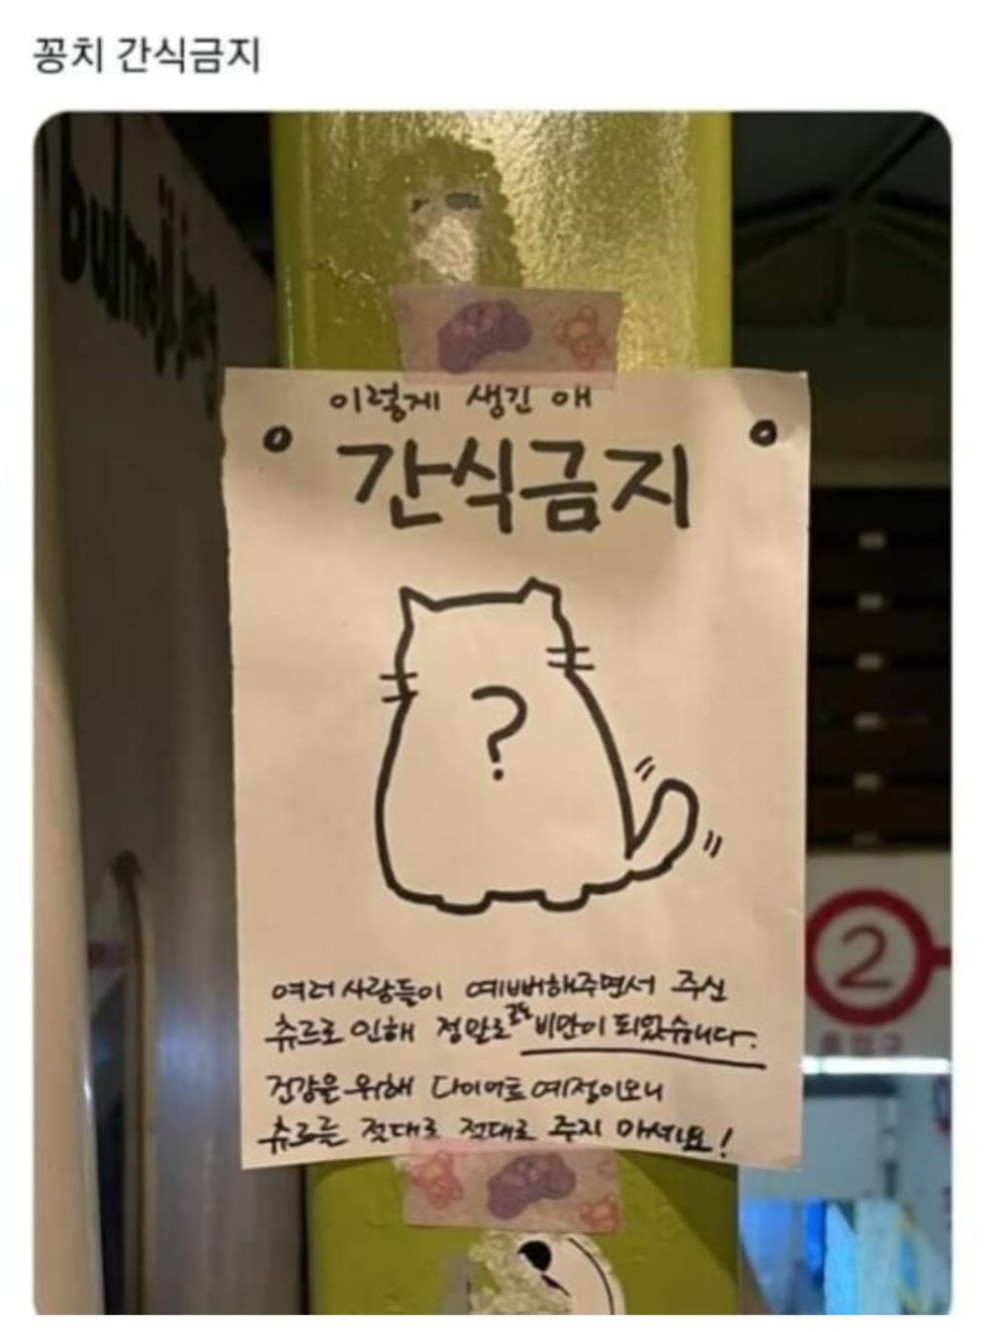 꽁치 간식금지
bulmijang
이렇게 생긴 애
간식금지
?
여러 사람들이 예뻐해주면서 주신
츄르로 인해 정말로 고도비만이 되었습니다.
건강을 위해 다이어트 예정이오니
츄르를 절대로 절대로 주지 마세요!
2
출입구